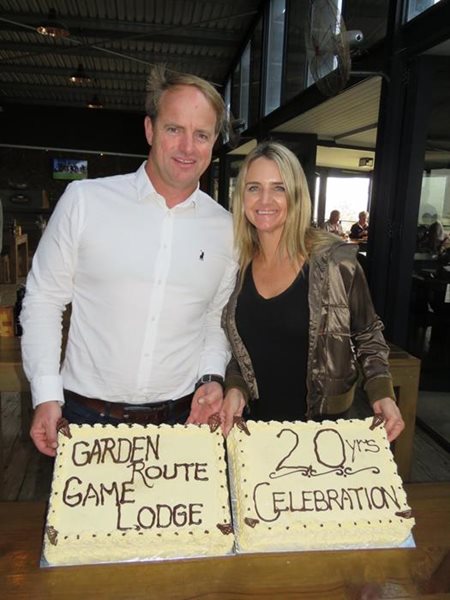 GARDEN
ROUTE
GAME
LODGE
20yrs
CELEBRATION